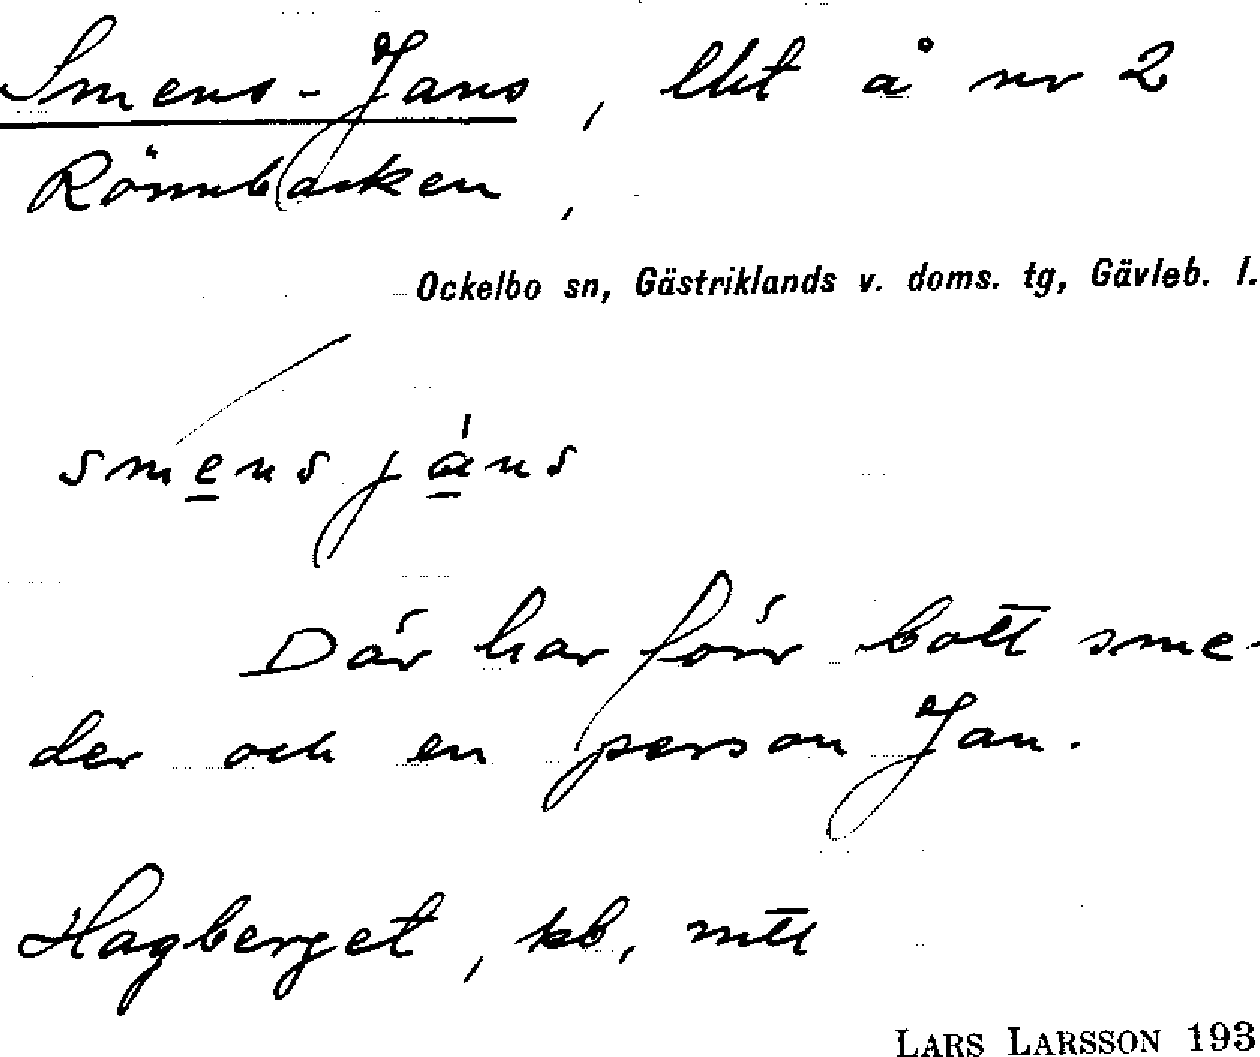 Smens-Jans, lht å nr 2
Rönnbacken,
Ockelbo sn, Gästriklands v. doms. tg, Gävleb. l.
smens jáns
Där har förr bott sme-
der och en person Jan.
Hagberget, kb, mtl
LARS LARSSON 193